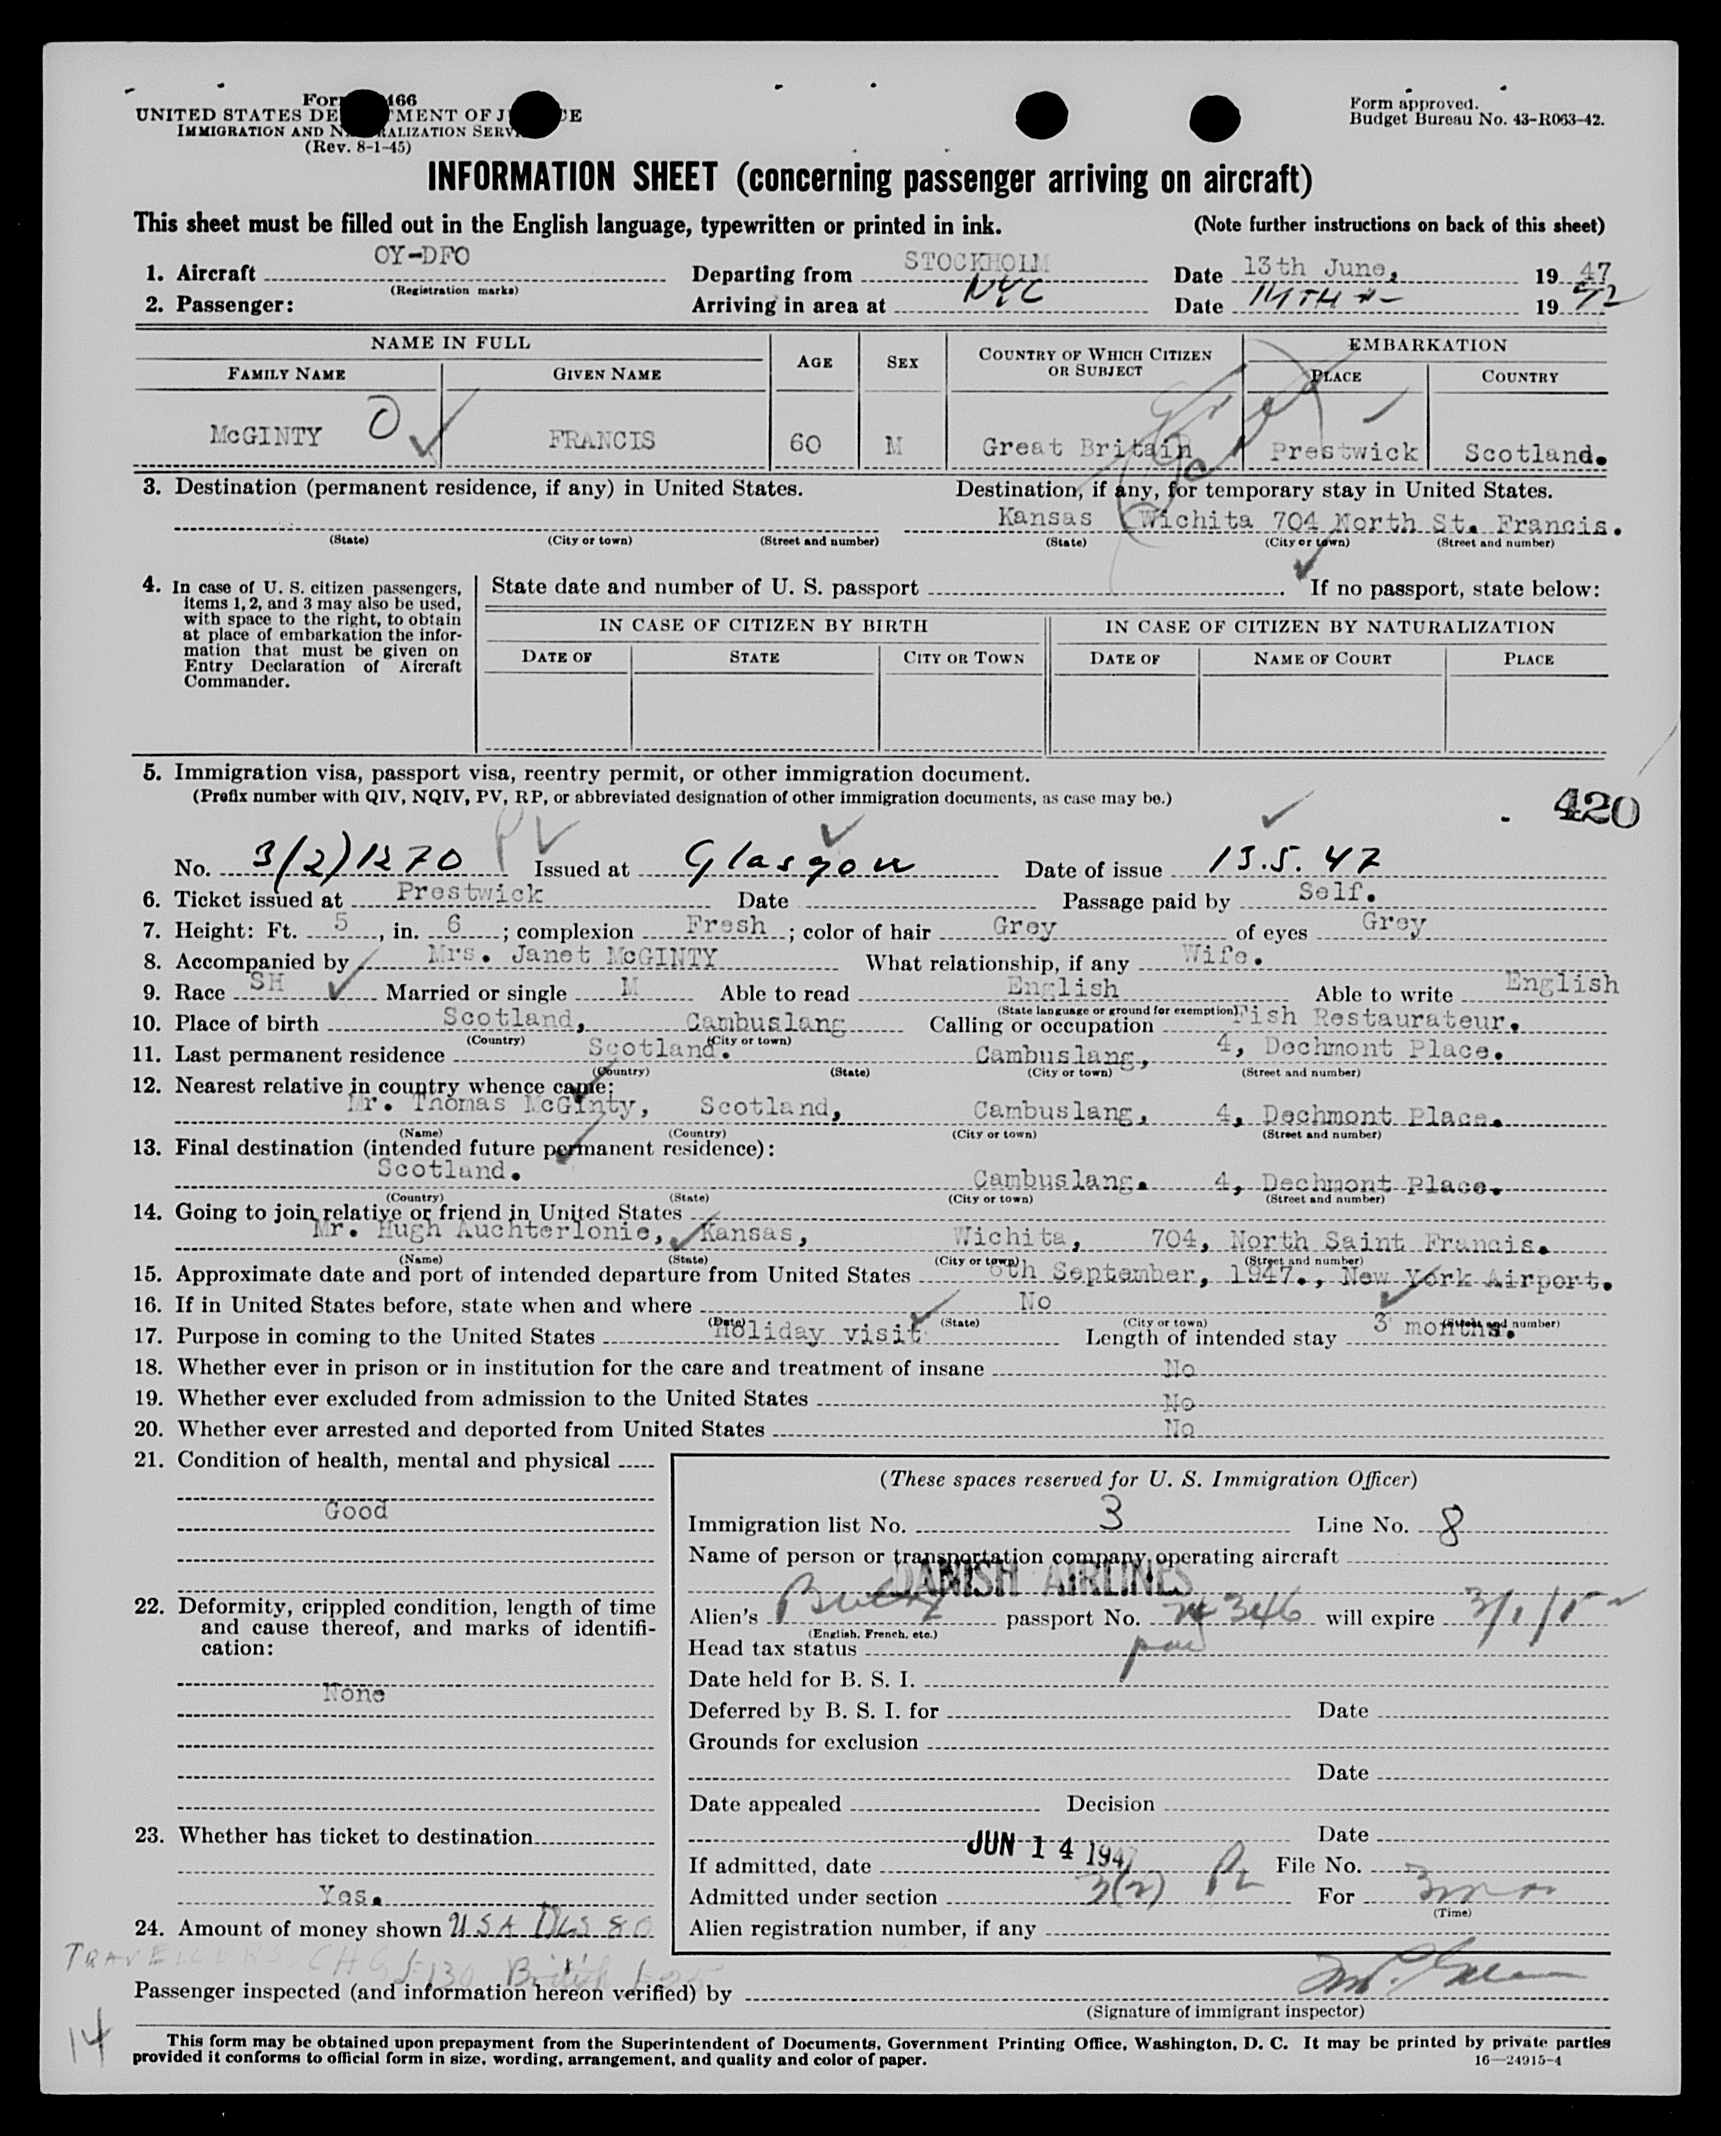 Form 466
UNITED STATES DEPARTMENT OF JUSTICE
IMMIGRATION AND NATURALIZATION SERVICE
(Rev. 8-1-45)
Form approved.
Budget Bureau No. 43-R063-42.
INFORMATION SHEET (concerning passenger arriving on aircraft)
This sheet must be filled out in the English language, typewritten or printed in ink. (Note further instructions on back of this sheet)
1. Aircraft OY-DFO Departing from STOCKHOLM Date 13th June, 19 47
(Registration marks)
2. Passenger: Arriving in area at NYC Date 14TH 19
NAME IN FULL AGE SEX COUNTRY OF WHICH CITIZEN OR SUBJECT EMBARKATION
FAMILY NAME GIVEN NAME PLACE COUNTRY
McGINTY O FRANCIS 60 M Great Britain Prestwick Scotland.
3. Destination (permanent residence, if any) in United States. Destination, if any, for temporary stay in United States.
Kansas Wichita 704 North St. Francis.
(State) (City or town) (Street and number) (State) (City or town) (Street and number)
4. In case of U. S. citizen passengers, items 1, 2, and 3 may also be used, with space to the right, to obtain at place of embarkation the information that must be given on Entry Declaration of Aircraft Commander.
State date and number of U. S. passport . If no passport, state below:
IN CASE OF CITIZEN BY BIRTH IN CASE OF CITIZEN BY NATURALIZATION
DATE OF STATE CITY OR TOWN DATE OF NAME OF COURT PLACE
5. Immigration visa, passport visa, reentry permit, or other immigration document.
(Prefix number with QIV, NQIV, PV, RP, or abbreviated designation of other immigration documents, as case may be.)
420
No. 3(2)1270 PV Issued at Glasgow Date of issue 13.5.47
6. Ticket issued at Prestwick Date Passage paid by Self.
7. Height: Ft. 5, in. 6; complexion Fresh; color of hair Grey of eyes Grey
8. Accompanied by Mrs. Janet McGINTY What relationship, if any Wife.
9. Race SH Married or single M Able to read English Able to write English
(State language or ground for exemption)
10. Place of birth Scotland, Cambuslang Calling or occupation Fish Restaurateur.
(Country) (City or town)
11. Last permanent residence Scotland. Cambuslang, 4, Dechmont Place.
(Country) (State) (City or town) (Street and number)
12. Nearest relative in country whence came:
Mr. Thomas McGinty, Scotland, Cambuslang, 4, Dechmont Place.
(Name) (Country) (City or town) (Street and number)
13. Final destination (intended future permanent residence):
Scotland. Cambuslang. 4, Dechmont Place.
(Country) (State) (City or town) (Street and number)
14. Going to join relative or friend in United States
Mr. Hugh Auchterlonie, Kansas, Wichita, 704, North Saint Francis.
(Name) (State) (City or town) (Street and number)
15. Approximate date and port of intended departure from United States 6th September, 1947., New York Airport.
16. If in United States before, state when and where No
(Date) (State) (City or town) (Street and number)
17. Purpose in coming to the United States Holiday visit Length of intended stay 3 months.
18. Whether ever in prison or in institution for the care and treatment of insane No
19. Whether ever excluded from admission to the United States No
20. Whether ever arrested and deported from United States No
21. Condition of health, mental and physical
Good
22. Deformity, crippled condition, length of time and cause thereof, and marks of identification:
None
23. Whether has ticket to destination
Yes.
24. Amount of money shown USA Dls 80
TRAVELLERS CHQ £130 British
(These spaces reserved for U. S. Immigration Officer)
Immigration list No. 3 Line No. 8
Name of person or transportation company operating aircraft
DANISH AIRLINES
Alien's passport No. 346 will expire
(English, French, etc.)
Head tax status
Date held for B. S. I.
Deferred by B. S. I. for Date
Grounds for exclusion
Date
Date appealed Decision
Date
If admitted, date JUN 14 1947 File No.
Admitted under section 3(2) For 3 mos
(Time)
Alien registration number, if any
Passenger inspected (and information hereon verified) by
(Signature of immigrant inspector)
14
This form may be obtained upon prepayment from the Superintendent of Documents, Government Printing Office, Washington, D. C. It may be printed by private parties
provided it conforms to official form in size, wording, arrangement, and quality and color of paper. 16—24915-4